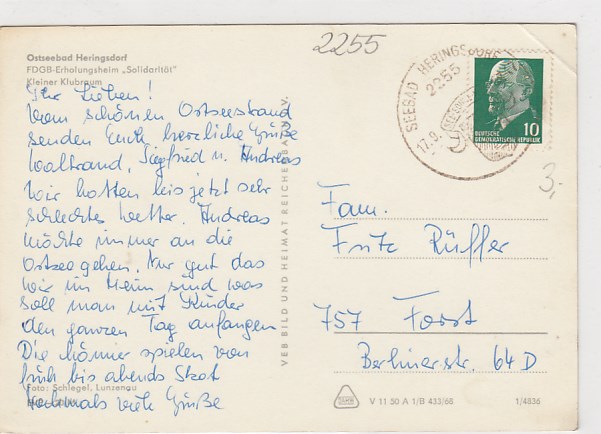 2255
Ostseebad Heringsdorf
FDGB-Erholungsheim „Solidarität"
Kleiner Klubraum
Ihr Lieben!
Vom schönen Ostseestrand
senden Euch herzliche Grüße
Waltraud, Siegfried u. Andreas
Wir hatten bis jetzt sehr
schlechtes Wetter. Andreas
möchte immer an die
Ostsee gehen. Nur gut das
wir im Heim sind was
soll man mit Kinder
den ganzen Tag anfangen
Die Männer spielen von
früh bis abends Skat
Nochmals viele Grüße
Foto: Schlegel, Lunzenau
VEB BILD UND HEIMAT REICHENBACH I. V.
SEEBAD HERINGSDORF
2255
17.9.
10
DEUTSCHE
DEMOKRATISCHE REPUBLIK
3,-
Fam.
Fritz Rüffer
757 Forst
Berlinerstr. 64 D
V 11 50 A 1/B 433/68
1/4836